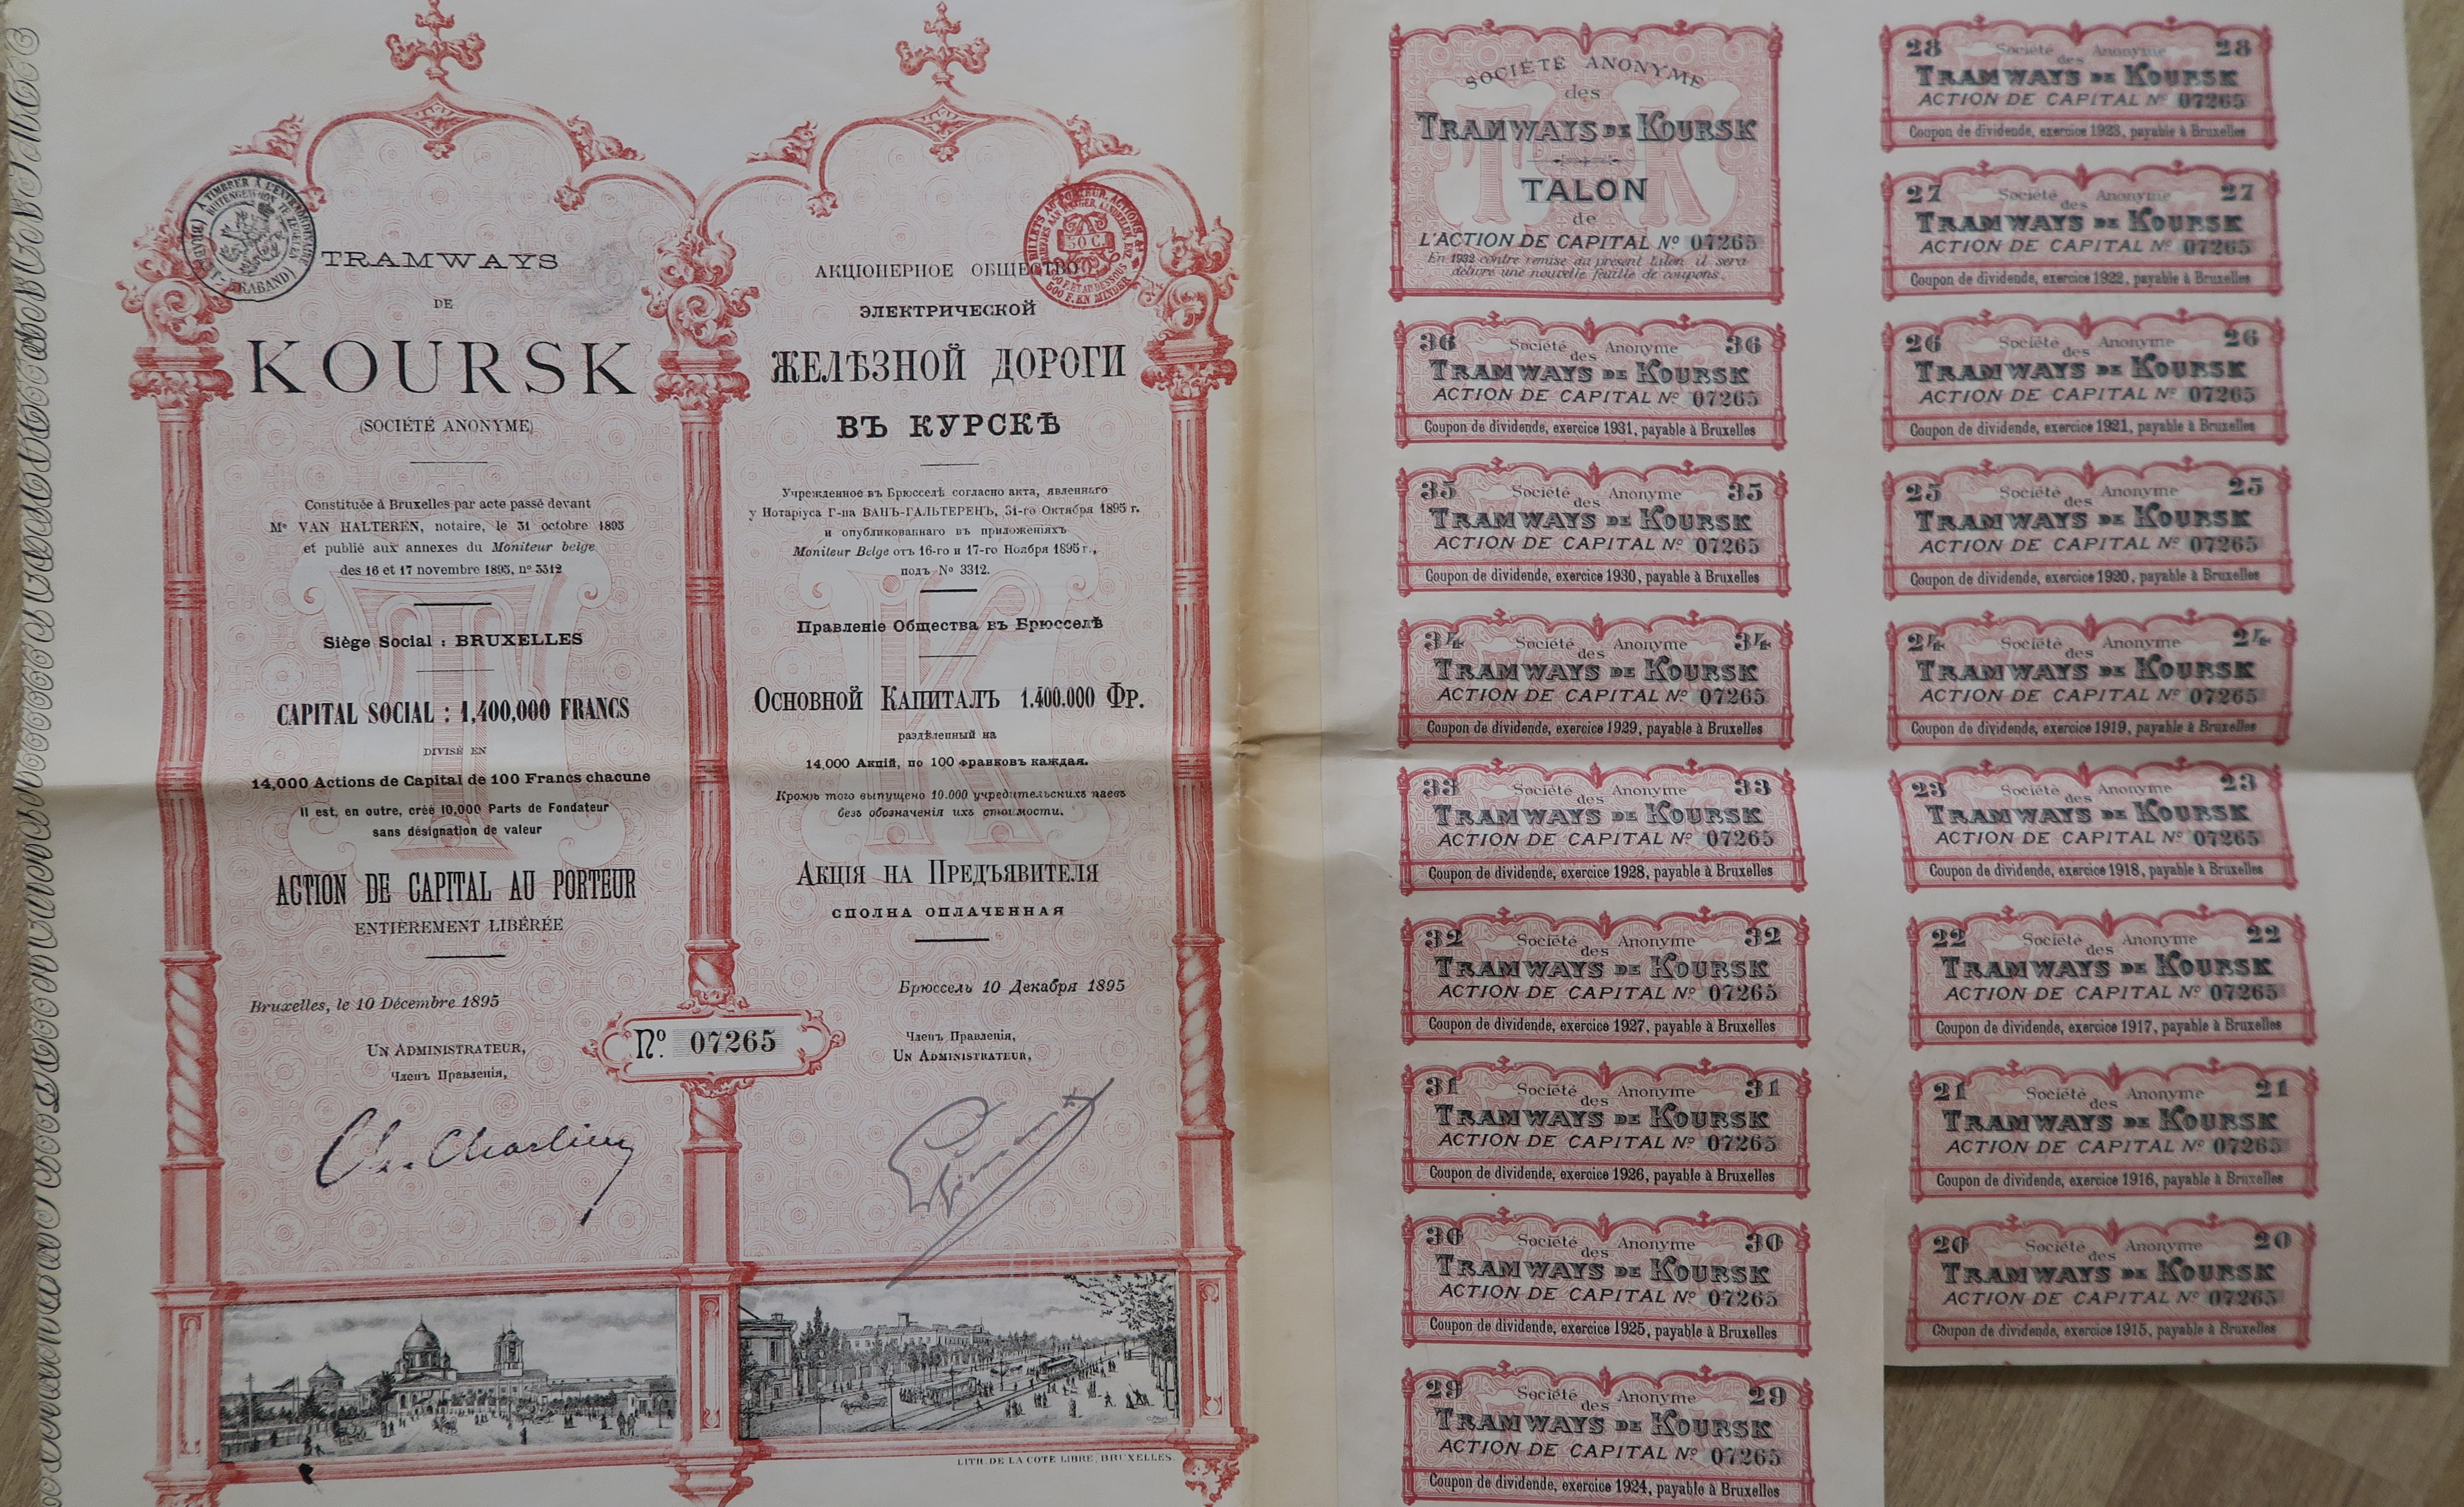 TRAMWAYS
DE
KOURSK
(SOCIÉTÉ ANONYME)
Constituée à Bruxelles par acte passé devant
Me VAN HALTEREN, notaire, le 31 octobre 1895
et publié aux annexes du Moniteur belge
des 16 et 17 novembre 1895, no 3312
Siège Social : BRUXELLES
CAPITAL SOCIAL : 1,400,000 FRANCS
DIVISÉ EN
14,000 Actions de Capital de 100 Francs chacune
Il est, en outre, créé 10,000 Parts de Fondateur
sans désignation de valeur
ACTION DE CAPITAL AU PORTEUR
ENTIÈREMENT LIBÉRÉE
Bruxelles, le 10 Décembre 1895
UN ADMINISTRATEUR,
Членъ Правленія,
Ch. Charlier
No. 07265
АКЦІОНЕРНОЕ ОБЩЕСТВО
ЭЛЕКТРИЧЕСКОЙ
ЖЕЛѢЗНОЙ ДОРОГИ
ВЪ КУРСКѢ
Учрежденное въ Брюсселѣ согласно акта, явленнаго
у Нотаріуса Г-на ВАНЪ-ГАЛЬТЕРЕНЪ, 31-го Октября 1895 г.
и опубликованнаго въ приложеніяхъ
Moniteur Belge отъ 16-го и 17-го Ноября 1895 г.,
подъ № 3312.
Правленіе Общества въ Брюсселѣ
ОСНОВНОЙ КАПИТАЛЪ 1.400.000 ФР.
раздѣленный на
14,000 Акцій, по 100 франковъ каждая.
Кромѣ того выпущено 10.000 учредительскихъ паевъ
безъ обозначенія ихъ стоимости.
АКЦІЯ НА ПРЕДЪЯВИТЕЛЯ
СПОЛНА ОПЛАЧЕННАЯ
Брюссель 10 Декабря 1895
Членъ Правленія,
UN ADMINISTRATEUR,
LITH. DE LA COTE LIBRE, BRUXELLES.
SOCIÉTÉ ANONYME
des
TRAMWAYS DE KOURSK
TALON
de
L'ACTION DE CAPITAL No 07265
En 1932 contre remise du présent talon il sera
délivré une nouvelle feuille de coupons.
36 Société Anonyme 36
des
TRAMWAYS DE KOURSK
ACTION DE CAPITAL No 07265
Coupon de dividende, exercice 1931, payable à Bruxelles
35 Société Anonyme 35
des
TRAMWAYS DE KOURSK
ACTION DE CAPITAL No 07265
Coupon de dividende, exercice 1930, payable à Bruxelles
34 Société Anonyme 34
des
TRAMWAYS DE KOURSK
ACTION DE CAPITAL No 07265
Coupon de dividende, exercice 1929, payable à Bruxelles
33 Société Anonyme 33
des
TRAMWAYS DE KOURSK
ACTION DE CAPITAL No 07265
Coupon de dividende, exercice 1928, payable à Bruxelles
32 Société Anonyme 32
des
TRAMWAYS DE KOURSK
ACTION DE CAPITAL No 07265
Coupon de dividende, exercice 1927, payable à Bruxelles
31 Société Anonyme 31
des
TRAMWAYS DE KOURSK
ACTION DE CAPITAL No 07265
Coupon de dividende, exercice 1926, payable à Bruxelles
30 Société Anonyme 30
des
TRAMWAYS DE KOURSK
ACTION DE CAPITAL No 07265
Coupon de dividende, exercice 1925, payable à Bruxelles
29 Société Anonyme 29
des
TRAMWAYS DE KOURSK
ACTION DE CAPITAL No 07265
Coupon de dividende, exercice 1924, payable à Bruxelles
28 Société Anonyme 28
des
TRAMWAYS DE KOURSK
ACTION DE CAPITAL No 07265
Coupon de dividende, exercice 1923, payable à Bruxelles
27 Société Anonyme 27
des
TRAMWAYS DE KOURSK
ACTION DE CAPITAL No 07265
Coupon de dividende, exercice 1922, payable à Bruxelles
26 Société Anonyme 26
des
TRAMWAYS DE KOURSK
ACTION DE CAPITAL No 07265
Coupon de dividende, exercice 1921, payable à Bruxelles
25 Société Anonyme 25
des
TRAMWAYS DE KOURSK
ACTION DE CAPITAL No 07265
Coupon de dividende, exercice 1920, payable à Bruxelles
24 Société Anonyme 24
des
TRAMWAYS DE KOURSK
ACTION DE CAPITAL No 07265
Coupon de dividende, exercice 1919, payable à Bruxelles
23 Société Anonyme 23
des
TRAMWAYS DE KOURSK
ACTION DE CAPITAL No 07265
Coupon de dividende, exercice 1918, payable à Bruxelles
22 Société Anonyme 22
des
TRAMWAYS DE KOURSK
ACTION DE CAPITAL No 07265
Coupon de dividende, exercice 1917, payable à Bruxelles
21 Société Anonyme 21
des
TRAMWAYS DE KOURSK
ACTION DE CAPITAL No 07265
Coupon de dividende, exercice 1916, payable à Bruxelles
20 Société Anonyme 20
des
TRAMWAYS DE KOURSK
ACTION DE CAPITAL No 07265
Coupon de dividende, exercice 1915, payable à Bruxelles